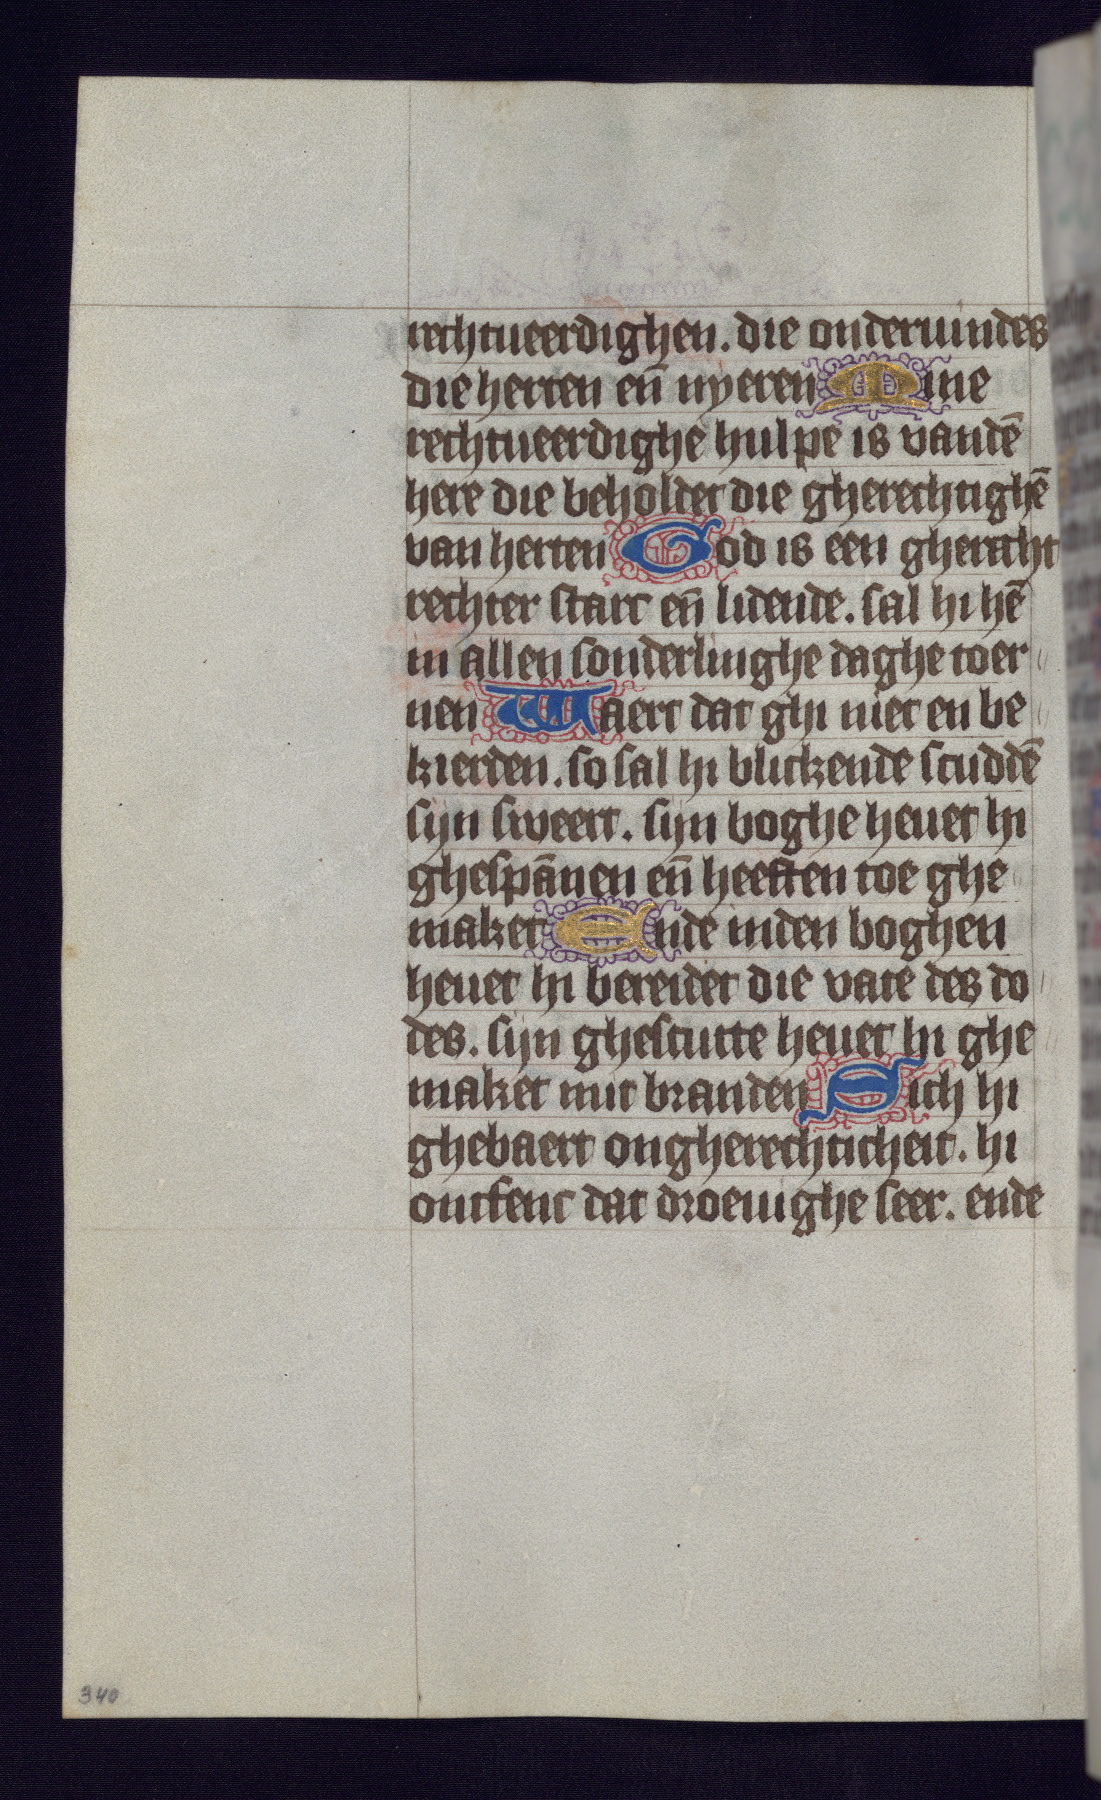 rechtueerdighen. die onderuindes
die herten en̄ nyeren Mine
rechtueerdighe hulpe is vandē
here die beholdet die gherechtighē
van herten God is een gheracht
rechter starc en̄ lidende. sal hi hē
in allen sonderlinghe daghe toer
nen Waert dat ghi niet en be
kierden. so sal hi blickende scuddē
sijn sweert. sijn boghe heuet hi
ghespānen en̄ heeften toe ghe
maket Ende inden boghen
heuet hi bereidet die vate des do
des. sijn ghescutte heuet hi ghe
maket mit branden Sich hi
ghebaert ongherechticheit. hi
ontfenc dat droeuighe seer. ende
340